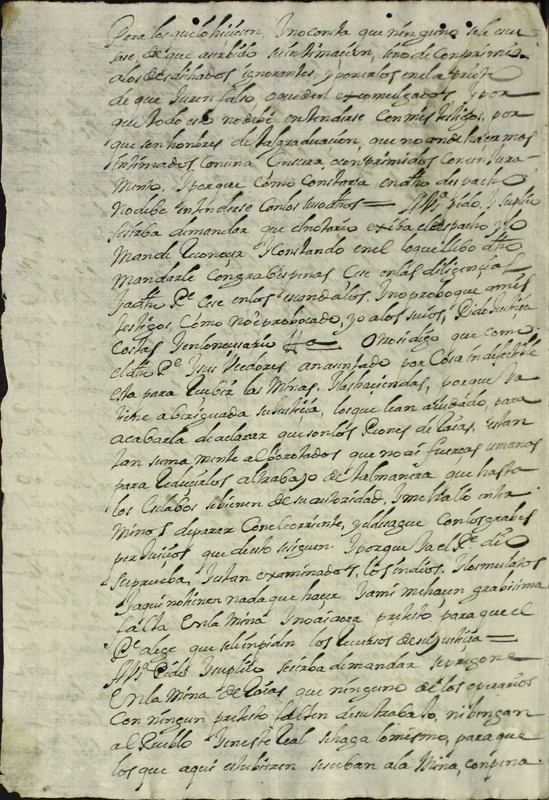 Para los que lo hiciesen, Y no consta que ninguno se le escu
sase, de que a resibido su intimacion, sino de conprimir
a los desdichados ignorantes, y ponerlos en el
de que Juren falso o queden excomulgados, Y por
que todo esto no deve entenderse con mis testigos, por
que son honbres de tal graduacion, que no andar
intimados con una Censura, o conprimidos con un Jura-
mento. Y porque como constara en dho despacho
no deve entenderse con los susodhos = A Vmd pido, Y suplico
se sirba de mandar que el notario exiba el despacho, y lo
mande reconoser Y constando en el lo que llebo dho
mandarle con grabes penas cese en las diligencias
Y a dho Pe cese en los escandalos, Y no probo que a mis
testigos, como no e probocado, yo a los suios, Pido Justicia
Costas Y en lo necesario &a = Otrosi digo que como
el dho Pe Y sus Veedores an asentado por cosa indefectible
esta para resibir las Minas, Y las haciendas, porque ya
tiene aberiguada su Justicia, los que lean aiudado, para
acabarla de aclarar que son los Peones de Raias, estan
tan suma mente alborotados que no ai fuersas umanas
para redusirlos al trabajo de tal manera que hasta
los Esclabos se bienen de su autoridad, Y me hallo en ter
minos de parar con el corriente, y el desague con los grabes
perjuicios que de esto se siguen. Y porque ya el Pe dio
su prueba, Y estan examinados, los indios, Y los mulatos
Y aqui no tienen nada que haser Y a mi me hasen grabisima
falta en la Mina Y no ai para pretesto para que el
Pe alege que se le inpidan los recursos de su Justicia =
A Vmd Pido Y suplico se sirba de mandar se pregone
En la Mina de Raias que ninguno de los operarios
con ningun pretesto falten de su trabajo, ni bengan
al Pueblo Y en este Real se haga lo mismo, para que
los que aqui estubieren se suban a la Mina, con pena